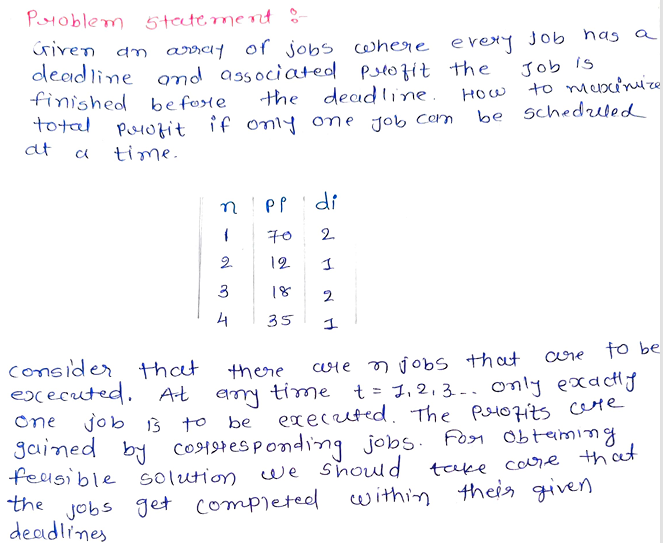 Problem statement :-
Given an array of jobs where every Job has a
deadline and associated profit the Job is
finished before the deadline. How to maximize
total profit if only one Job can be scheduled
at a time.
n PP di
1 70 2
2 12 1
3 18 2
4 35 1
consider that there are n jobs that are to be
excecuted. At any time t = 1, 2, 3 .. only exactly
one job is to be executed. The profits are
gained by corresponding jobs. For obtaining
feasible solution we should take care that
the jobs get completed within their given
deadlines